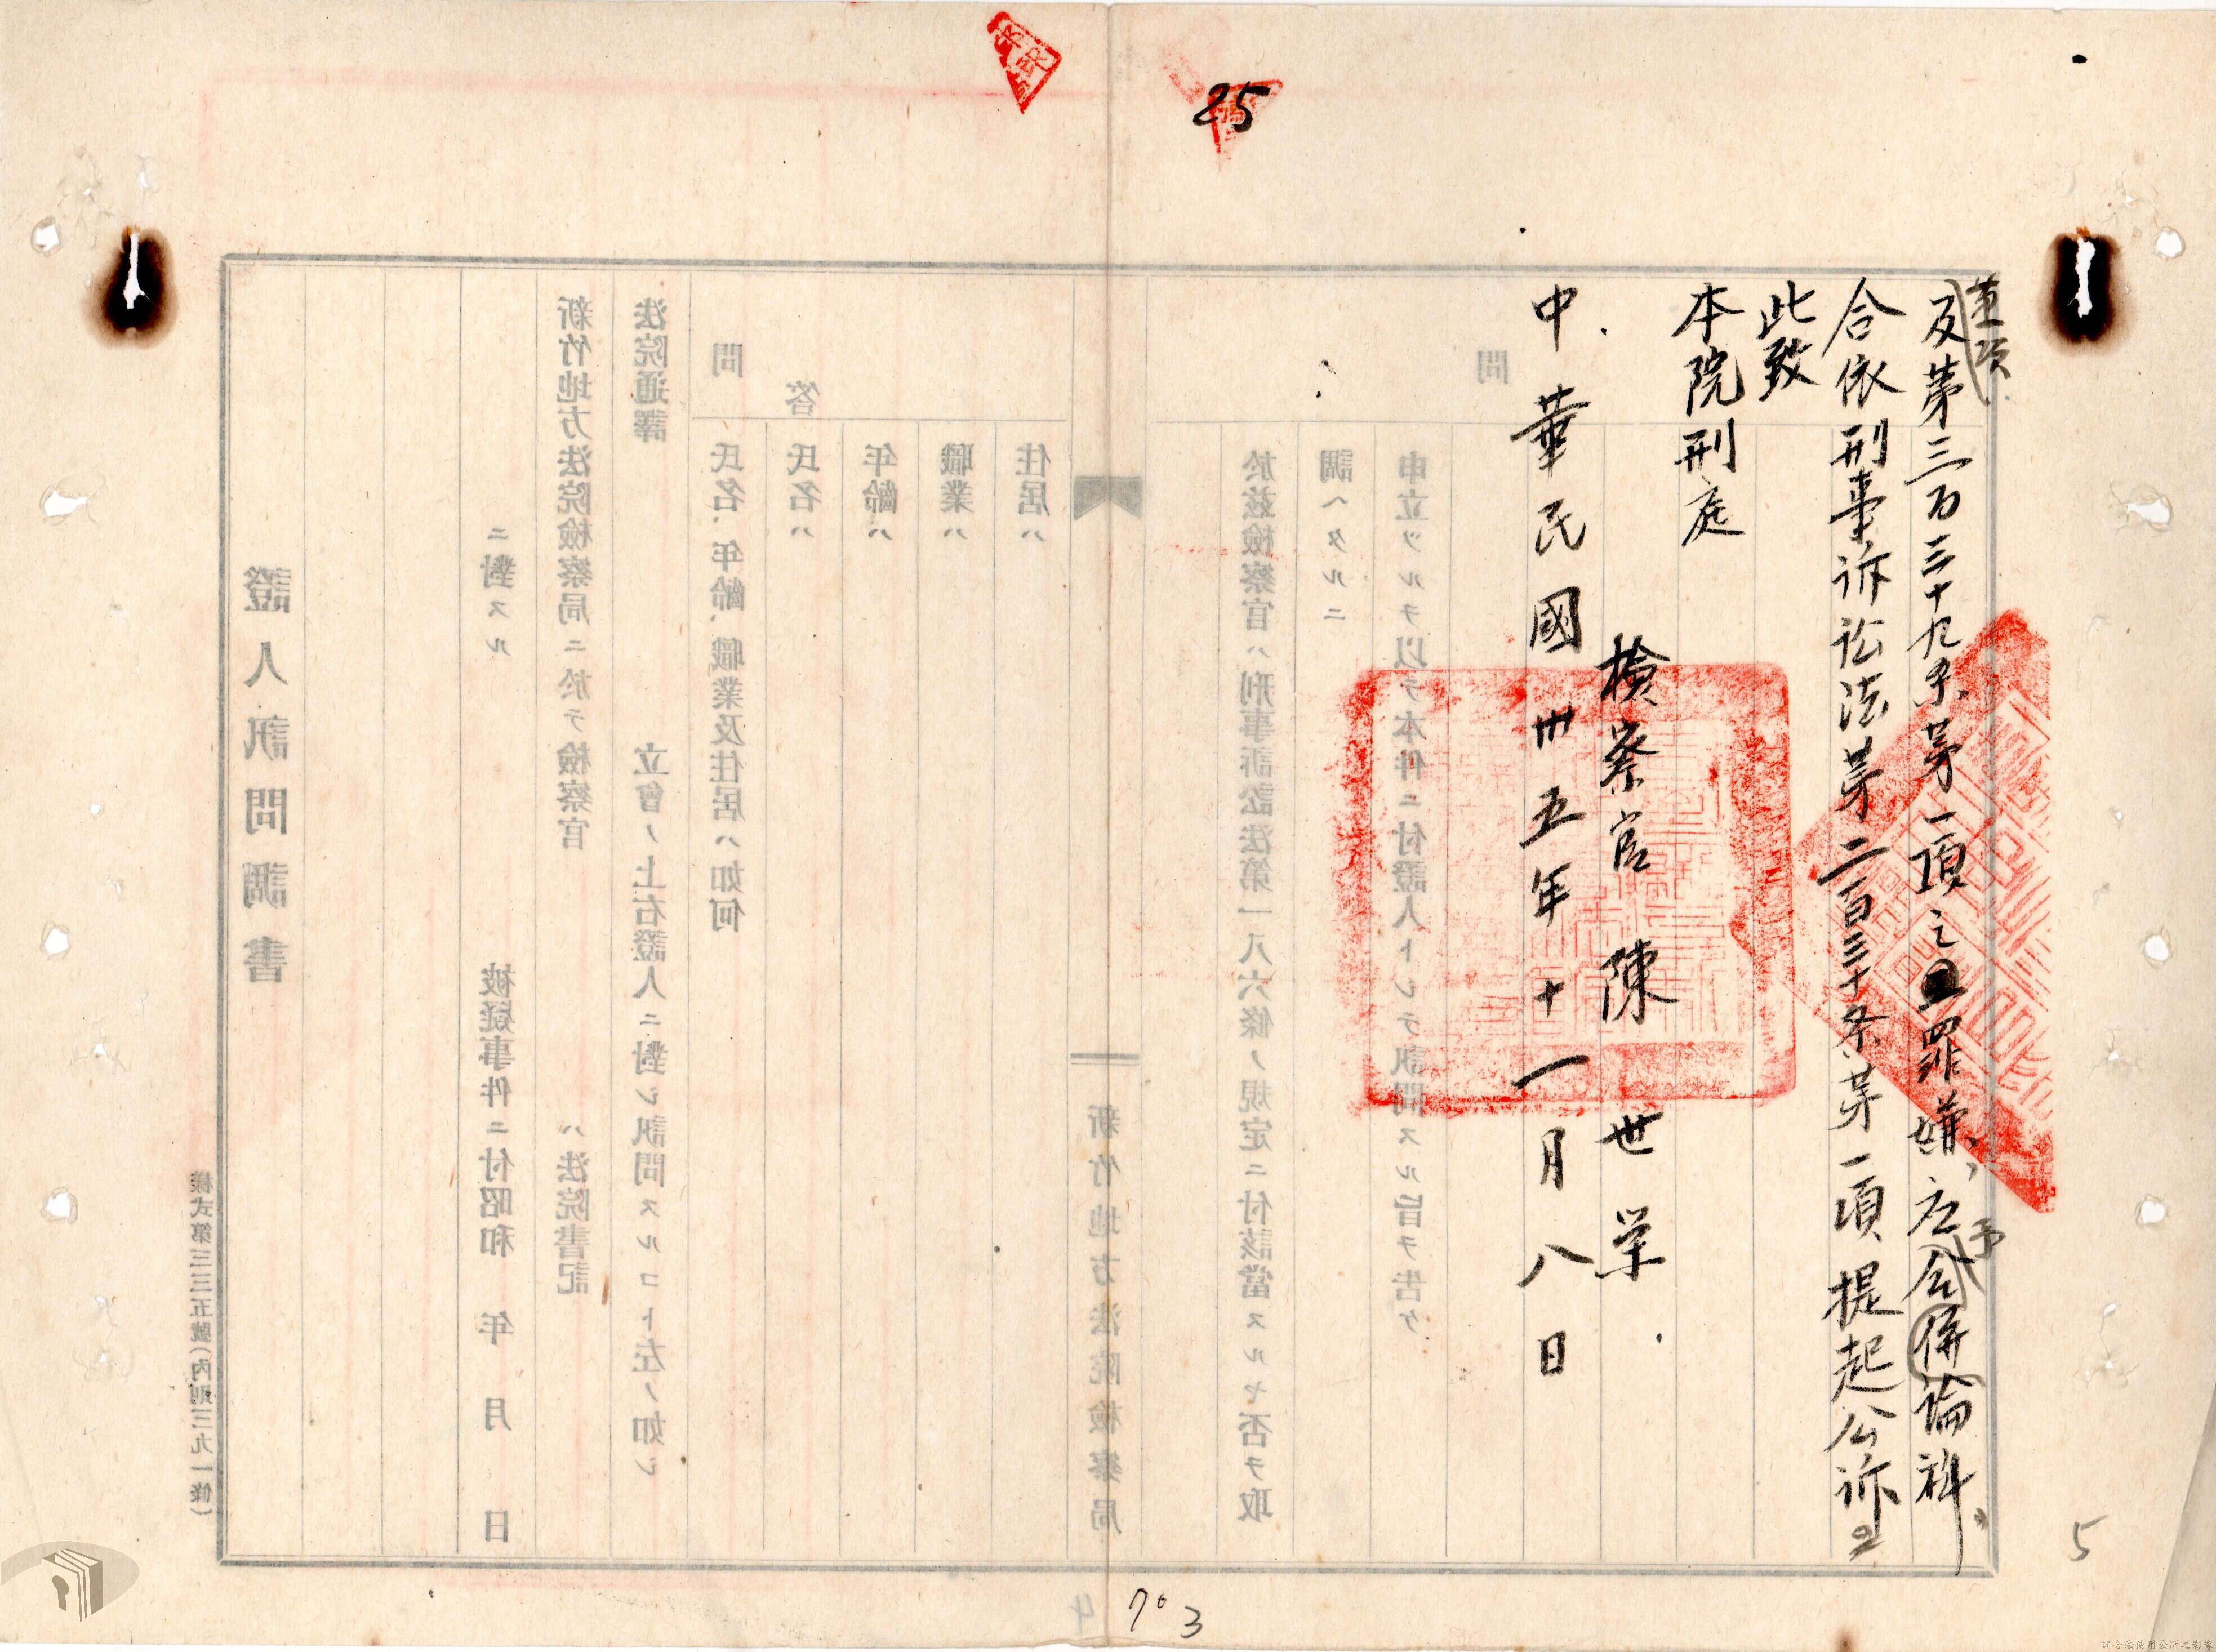 25
及第三百三十九条第一項之罪嫌,應合併論科,
予
合依刑事訴訟法第二百三十条第一項提起公訴
此致
本院刑庭
檢察官 陳世栄
中華民國卅五年十一月八日
問
申立ツルヲ以テ本件ニ付證人トシテ訊問スル旨ヲ告ケ
調ヘタルニ
於茲檢察官ハ刑事訴訟法第一八六條ノ規定ニ付該當スルヤ否ヲ取
新竹地方法院檢察局
住居ハ
職業ハ
年齡ハ
答 氏名ハ
問 氏名、年齡、職業及住居ハ如何
法院通譯 立會ノ上右證人ニ對シ訊問スルコト左ノ如シ
新竹地方法院檢察局ニ於テ檢察官 ハ法院書記
ニ對スル 被疑事件ニ付昭和 年 月 日
證人訊問調書
樣式第三三五號(內則三九一條)
5
4
703
請合法使用公開之影像